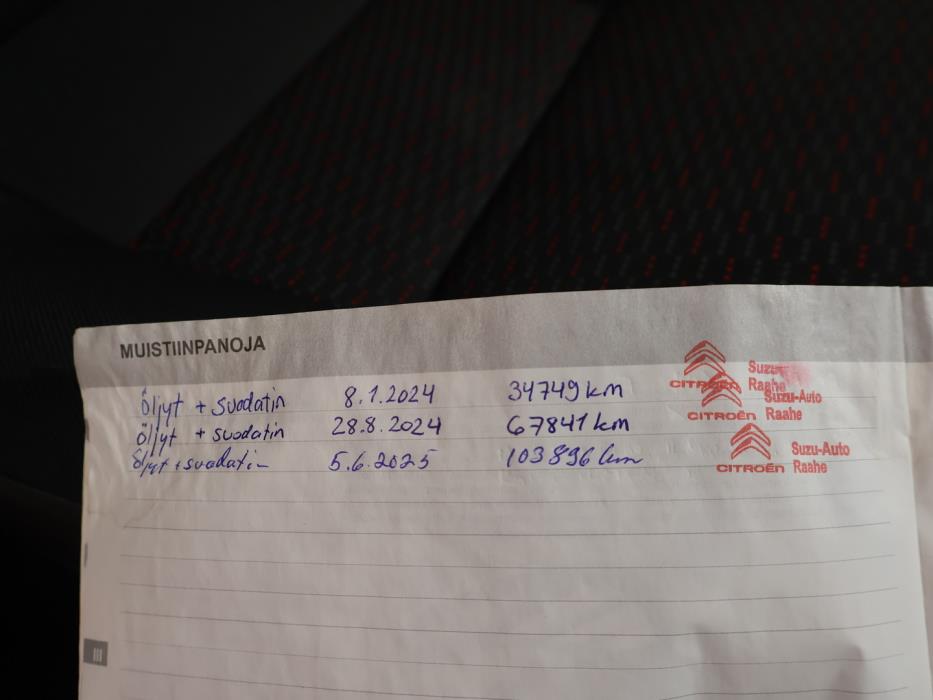 MUISTIINPANOJA
Öljyt + suodatin 8.1.2024 34749 km CITROËN Suzu- Raahe
Öljyt + suodatin 28.8.2024 67841 km CITROËN Suzu-Auto Raahe
Öljyt + suodatin 5.6.2025 103896 km CITROËN Suzu-Auto Raahe
III